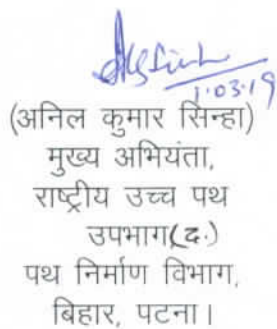 1.03.19
(अनिल कुमार सिन्हा)
मुख्य अभियंता,
राष्ट्रीय उच्च पथ
उपभाग(द.)
पथ निर्माण विभाग,
बिहार, पटना।